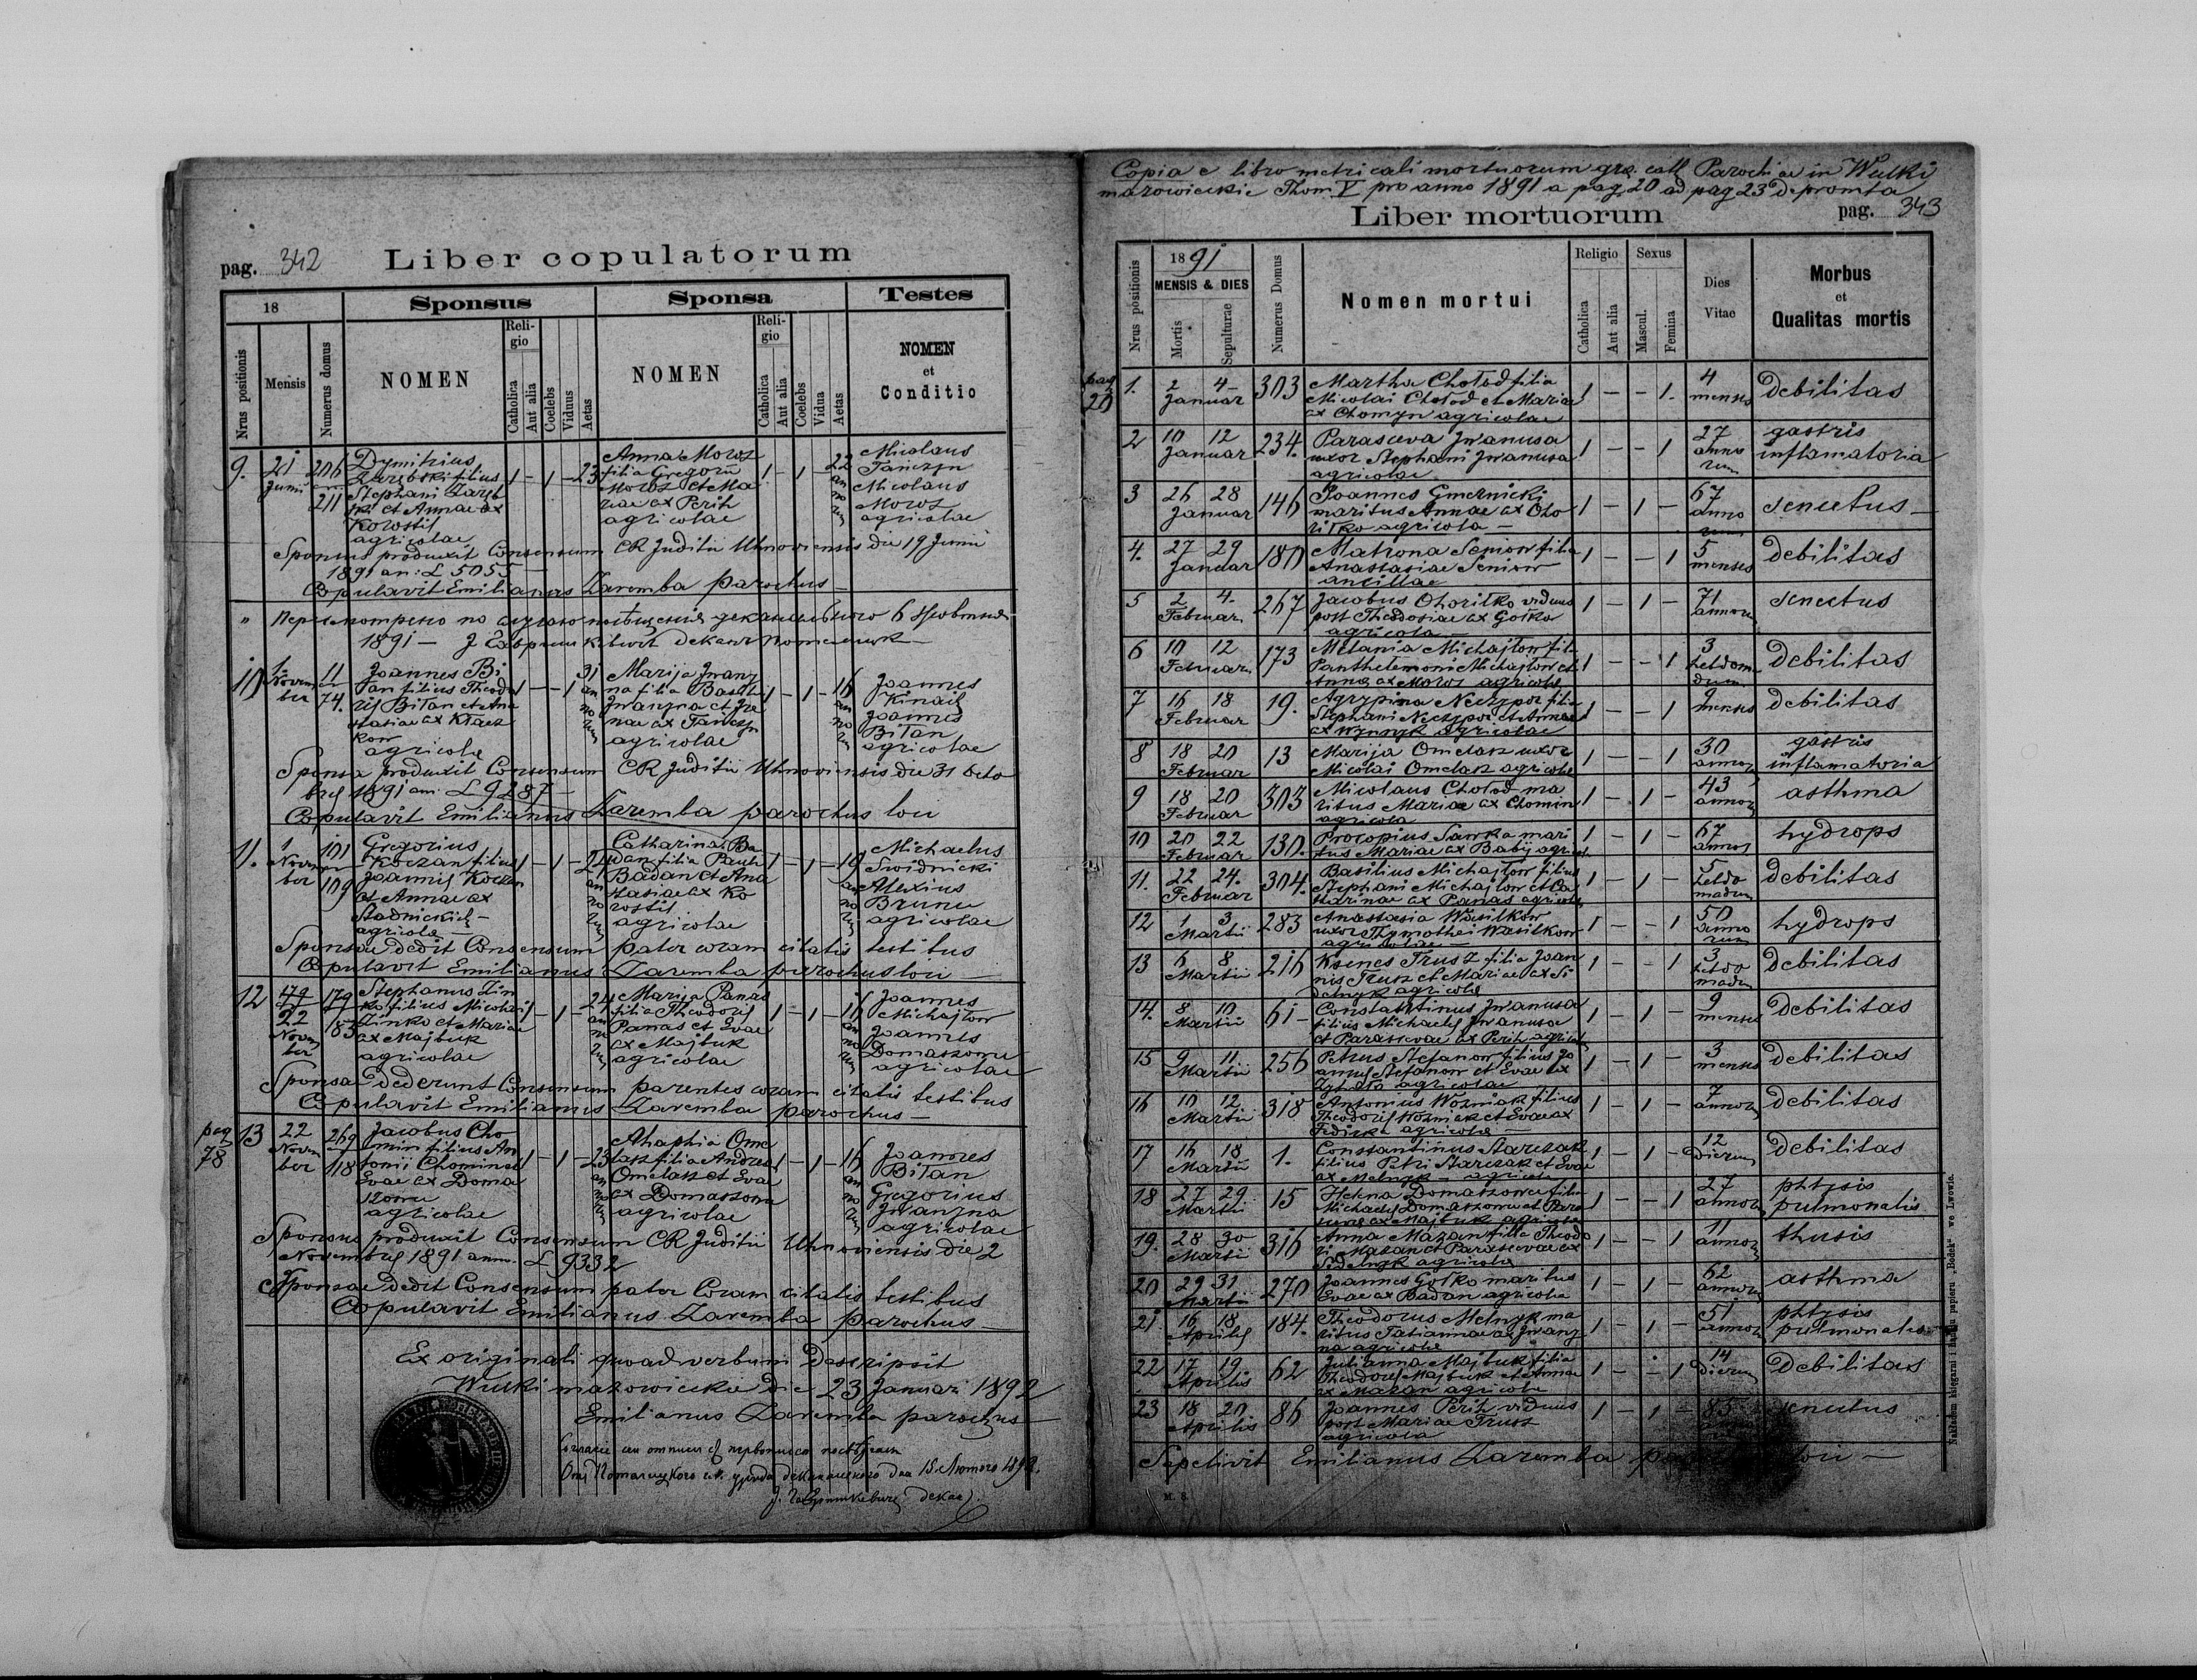 pag. 342 Liber copulatorum
18 Sponsus Sponsa Testes
Nrus positionis Mensis Numerus domus NOMEN Religio Catholica Aut alia Coelebs Viduus Aetas NOMEN Religio Catholica Aut alia Coelebs Vidua Aetas NOMEN et Conditio
9. 21 Junii 206 211
Dymitrius
Zarębski filius
Stephani Zaręb
ski et Annae ex
Korostil
agricolae
1 - 1 - 23
Anna Moroz
filia Gregorii
Moroz et Ma
riae ex Perih
agricolae
1 - 1 22
Micolaus
Tańczyn
Micolaus
Moroz
agricolae
Sponsus produxit Consensum CR Juditii Uhnoviensis die 19 Junii
1891 an: L 5055 —
Copulavit Emilianus Zaremba parochus —
1891 —
10 1 November 11 74.
Joannes Bi
tan filius Theodo
rij Bitan et Ana
stasiae ex Kracz
kow
agricolae
1 - - 1 31
Marija Jwany
na filia Basilii
Jwanyna et Jre
nae ex Tańczyn
agricolae
1 - 1 - 16
Joannes
Kinach
Joannes
Bitan
agricolae
Sponsa produxit Consensum CR Juditii Uhnoviensis die 31 Octo
bris 1891 an: L 9287 —
Copulavit Emilianus Zaremba parochus loci
11. 1 November 101 109
Gregorius
Koczan filius
Joannis Koczan
et Annae ex
Stadnickich —
agricolae —
1 - 1 - 24
Catharina Ba
dan filia Pauli
Badan et Ana
stasiae ex Ko
rostil
agricolae
1 - 1 - 19
Michaelus
Swidnicki
Alexius
Brunec
agricolae
Sponsae dedit Consensum pater coram citatis testibus
Copulavit Emilianus Zaremba parochus loci —
12 22 November 179 183
Stephanus Zin
ko filius Micolai
Zinko et Mariae
ex Majbuk
agricolae
1 - 1 - 24
Marija Panas
filia Theodorij
Panas et Evae
ex Majbuk
agricolae
1 - 1 - 16
Joannes
Michajłow
Joannes
Domaszowec
agricolae
Sponsae dederunt Consensum parentes coram citatis testibus
Copulavit Emilianus Zaremba parochus —
pag 78
13 22 November 269 118
Jacobus Cho
min filius An
tonii Chomin et
Evae ex Doma
szowec
agricolae
1 - 1 - 23
Ahaphia Ome
lasz filia Andreae
Omelasz et Evae
ex Domaszowec
agricolae
1 - 1 - 16
Joannes
Bitan
Gregorius
Jwanyna
agricolae
Sponsus produxit Consensum CR Juditii Uhnoviensis die 2
Novembris 1891 ann. L 9332
Sponsae dedit Consensum pater Coram citatis testibus
Copulavit Emilianus Zaremba parochus —
Ex originali quoad verbum Descripsit
Wulki mazowieckie die 23 Januari 1892
Emilianus Zaremba parochus
Copia e libro metricali mortuorum gra. cath Parochiae in Wulki
mazowieckie Thom V pro anno 1891 a pag 20 ad pag 23 depromta
Liber mortuorum pag. 343
Nrus positionis 1891 MENSIS & DIES Mortis Sepulturae Numerus Domus Nomen mortui Religio Catholica Aut alia Sexus Mascul. Femina Dies Vitae Morbus et Qualitas mortis
pag 20
1. 2 4 Januar 303
Martha Chołod filia
Micolai Chołod et Mariae
ex Chomyn agricolae
1 - - 1. 4 menses Debilitas
2 10 12 Januar 234.
Parasceva Jwanusa
uxor Stephani Jwanusa
agricolae
1 - - 1 27 annorum gastris inflamatoria
3 26 28 Januar 146
Joannes Gmernicki
maritus Annae ex Oho
rilko agricola —
1 - 1 - 67 annorum senectus —
4. 27 29 Januar 180
Matrona Seniow filia
Anastasiae Seniow
ancillae
1 - - 1 5 menses Debilitas
5 2 4. Februar 267
Jacobus Ohorilko viduus
post Theodosiae ex Gołko
agricola —
1 - 1 - 71 annorum senectus
6 10 12 Februar 173
Melania Michajłow fil.
Panthelemoni Michajłow et
Annae ex Moroz agricolae
1 - - 1 3 hebdomadum Debilitas
7 16 18 Februar 19.
Agrypina Neczypor filia
Stephani Neczypor et Annae
ex Wynnyk agricolae
1 - - 1 9 menses Debilitas
8 18 20 Februar 13
Marija Omelasz uxor
Micolai Omelasz agricolae
1 - - 1 30 annorum gastris inflamatoria
9 18 20 Februar 303
Micolaus Chołod ma
ritus Mariae ex Chomin
agricola
1 - 1 - 43 annorum asthma
10 20 22 Februar 130.
Procopius Sawka mari
tus Mariae ex Babij agricola
1 - 1 - 67 annos hydrops
11. 22 24. Februar 304.
Basilius Michajłow filius
Stephani Michajłow et Ca
tharinae ex Panas agricolae
1 - 1 - 5 hebdomadum Debilitas
12 1 3 Martii 283
Anastasia Wasilkow
uxor Thymothei Wasilkow
agricolae —
1 - - 1 50 annorum hydrops
13 6 8 Martii 216
Ksenes Trusz filia Joan
nis Trusz et Mariae ex Si
delnyk agricolae
1 - - 1 3 hebdomadum Debilitas
14. 8 10 Martii 61 -
Constantinus Jwanusa
filius Michaelis Jwanusa
et Parascevae ex Perih agricolae
1 - 1 - 9 menses Debilitas
15 9 11 Martii 256
Petrus Stefanow filius Jo
annis Stefanow et Evae ex
agricolae
1 - 1 - 3 menses Debilitas
16 10 12 Martii 318
Antonius Wozniak filius
Theodorij Wozniak et Evae ex
Fedirko agricolae —
1 - 1 - 7 annorum Debilitas
17 16 18 Martii 1.
Constantinus Starczak
filius Petri Starczak et Evae
ex Melnyk — agricolae
1 - 1 - 12 dierum Debilitas
18 27 29. Martii 15
Helena Domaszowec filia
Michaelis Domaszowec et Para
scevae ex Majbuk agricolae
1 - - 1 27 annorum phtysis pulmonalis
19. 28 30 Martii 316
Anna Mazan filia Theodo
ri Mazan et Parascevae ex
Sidelnyk agricolae
1 - - 1 11 annorum thusis
20 29 31 Martii 270
Joannes Gołko maritus
Evae ex Badan agricola
1 - 1 - 62 annorum asthma
21. 16 18 Aprilis 184.
Theodorus Melnyk ma
ritus Tatiannae ex Jwany
na agricola
1 - 1 - 51 annorum phtysis pulmonalis
22 17 19. Aprilis 62
Julianna Majbuk filia
Theodorij Majbuk et Annae
ex Mazan agricolae
1 - - 1 14 dierum Debilitas
23 18 20 Aprilis 86
Joannes Perih viduus
post Mariae Trusz
agricola
1 - 1 - 85 senectus
Sepelivit Emilianus Zaremba loci —
M. 8.
Nakładem księgarni i składu papieru „Bodek“ we Lwowie.